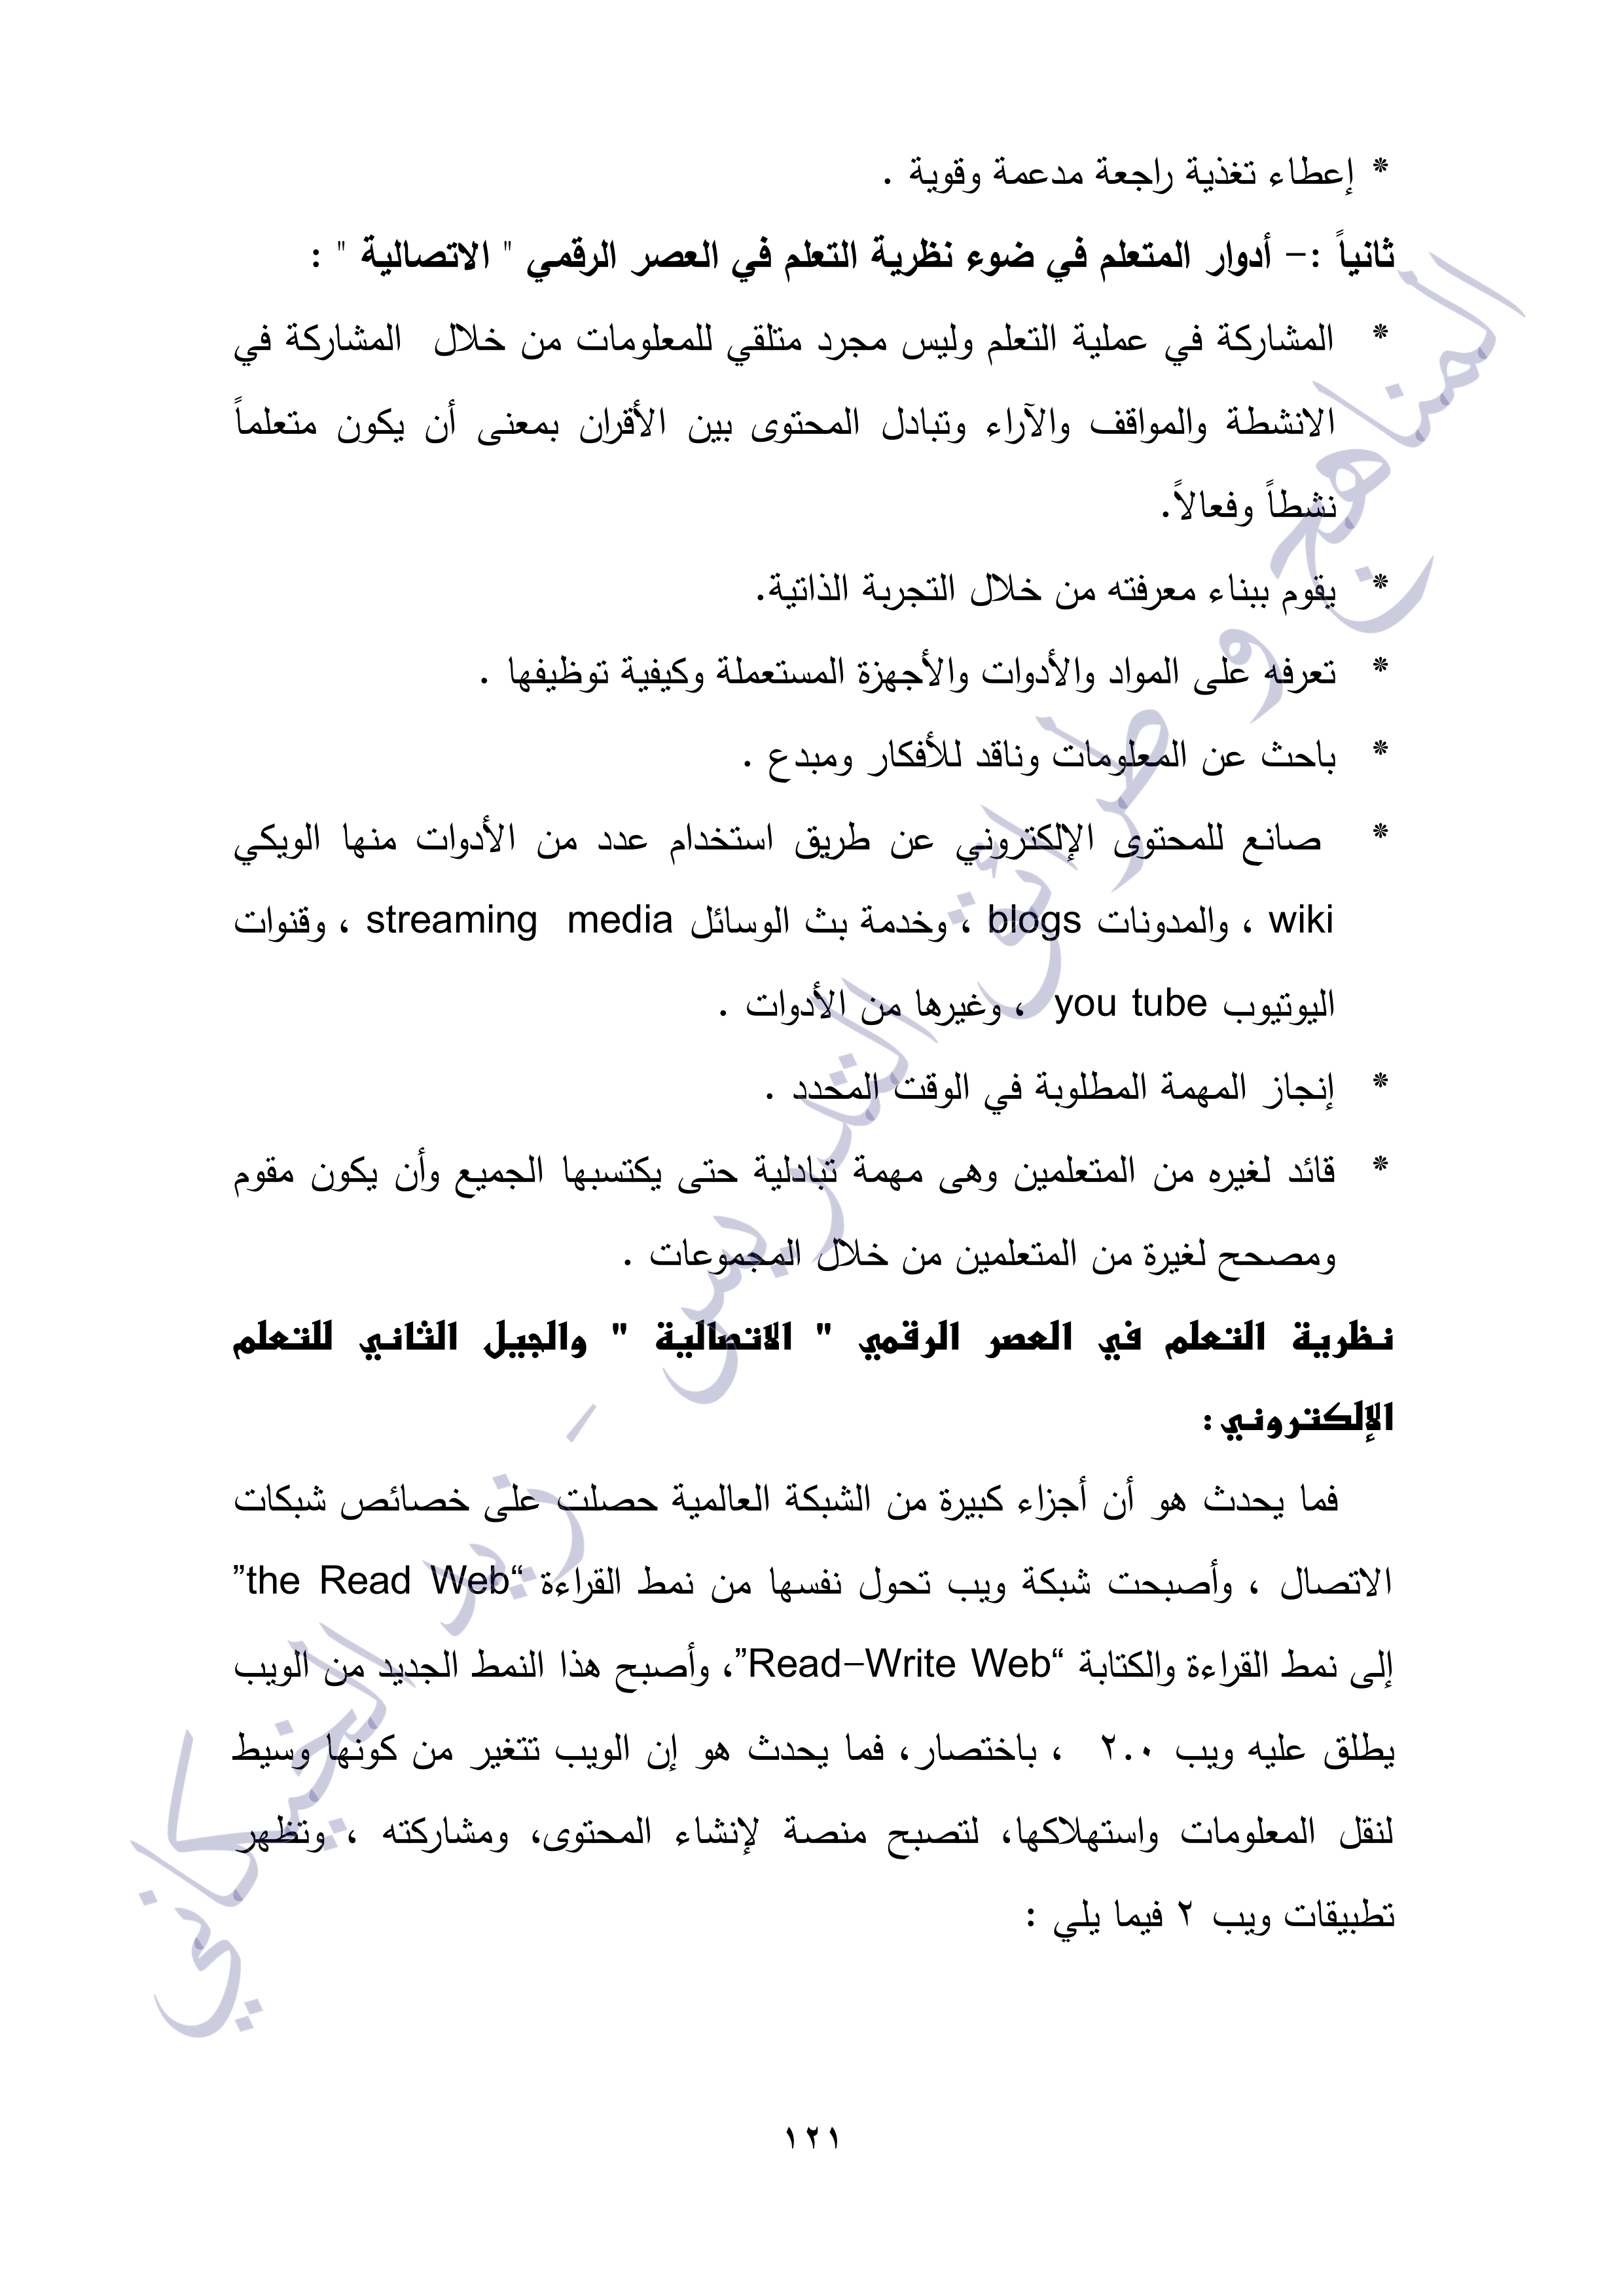 * إعطاء تغذية راجعة مدعمة وقوية .
ثانياً :- أدوار المتعلم في ضوء نظرية التعلم في العصر الرقمي " الاتصالية " :
* المشاركة في عملية التعلم وليس مجرد متلقي للمعلومات من خلال المشاركة في
الانشطة والمواقف والآراء وتبادل المحتوى بين الأقران بمعنى أن يكون متعلماً
نشطاً وفعالاً.
* يقوم ببناء معرفته من خلال التجربة الذاتية.
* تعرفه على المواد والأدوات والأجهزة المستعملة وكيفية توظيفها .
* باحث عن المعلومات وناقد للأفكار ومبدع .
* صانع للمحتوى الإلكتروني عن طريق استخدام عدد من الأدوات منها الويكي
wiki ، والمدونات blogs ، وخدمة بث الوسائل streaming media ، وقنوات
اليوتيوب you tube ، وغيرها من الأدوات .
* إنجاز المهمة المطلوبة في الوقت المحدد .
* قائد لغيره من المتعلمين وهى مهمة تبادلية حتى يكتسبها الجميع وأن يكون مقوم
ومصحح لغيرة من المتعلمين من خلال المجموعات .
نظرية التعلم في العصر الرقمي " الاتصالية " والجيل الثاني للتعلم
الإلكتروني :
فما يحدث هو أن أجزاء كبيرة من الشبكة العالمية حصلت على خصائص شبكات
الاتصال ، وأصبحت شبكة ويب تحول نفسها من نمط القراءة “the Read Web”
إلى نمط القراءة والكتابة “Read-Write Web”، وأصبح هذا النمط الجديد من الويب
يطلق عليه ويب ٢.٠ ، باختصار، فما يحدث هو إن الويب تتغير من كونها وسيط
لنقل المعلومات واستهلاكها، لتصبح منصة لإنشاء المحتوى، ومشاركته ، وتظهر
تطبيقات ويب ٢ فيما يلي :
المناهج و طرائق التدريس - زيد الخيكاني
١٢١